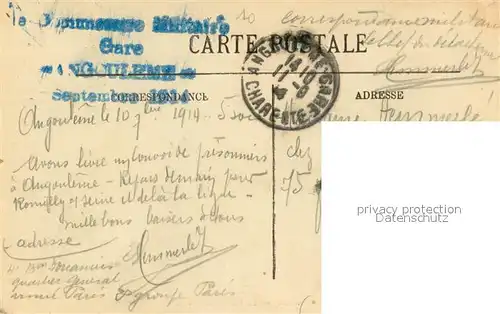 le Commissaire Militaire
Gare
ANGOULEME
Septembre 1914
correspondance militaire
CARTE POSTALE
ANGOULEME GARE
14 10
11 - 9
CHARENTE
CORRESPONDANCE
ADRESSE
Angoulême le 10 7bre 1914 - 5 soir
Avons livré un convoi de prisonniers
à Angoulême - Repars demain pour
Romilly s/ Seine et delà la ligne
mille bons baisers à tous
Hummerlé
adresse
quartier Général
Paris groupe Paris
chez
75
privacy protection
Datenschutz